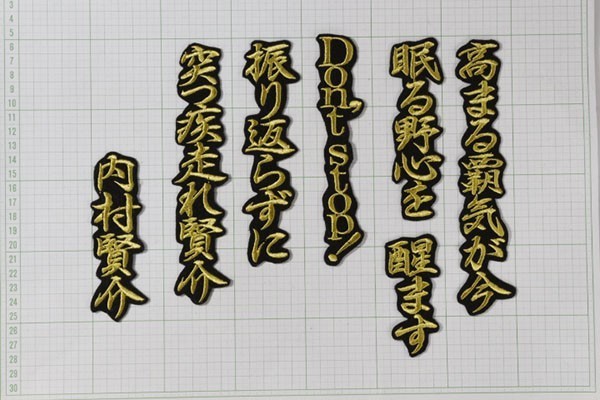 高まる覇気が今
眠る野心を 醒ます
Don't stop!
振り返らずに
突っ疾走れ賢介
内村賢介
3
4
5
6
7
8
9
10
11
12
13
14
15
16
17
18
19
20
21
22
23
24
25
26
27
28
29
30